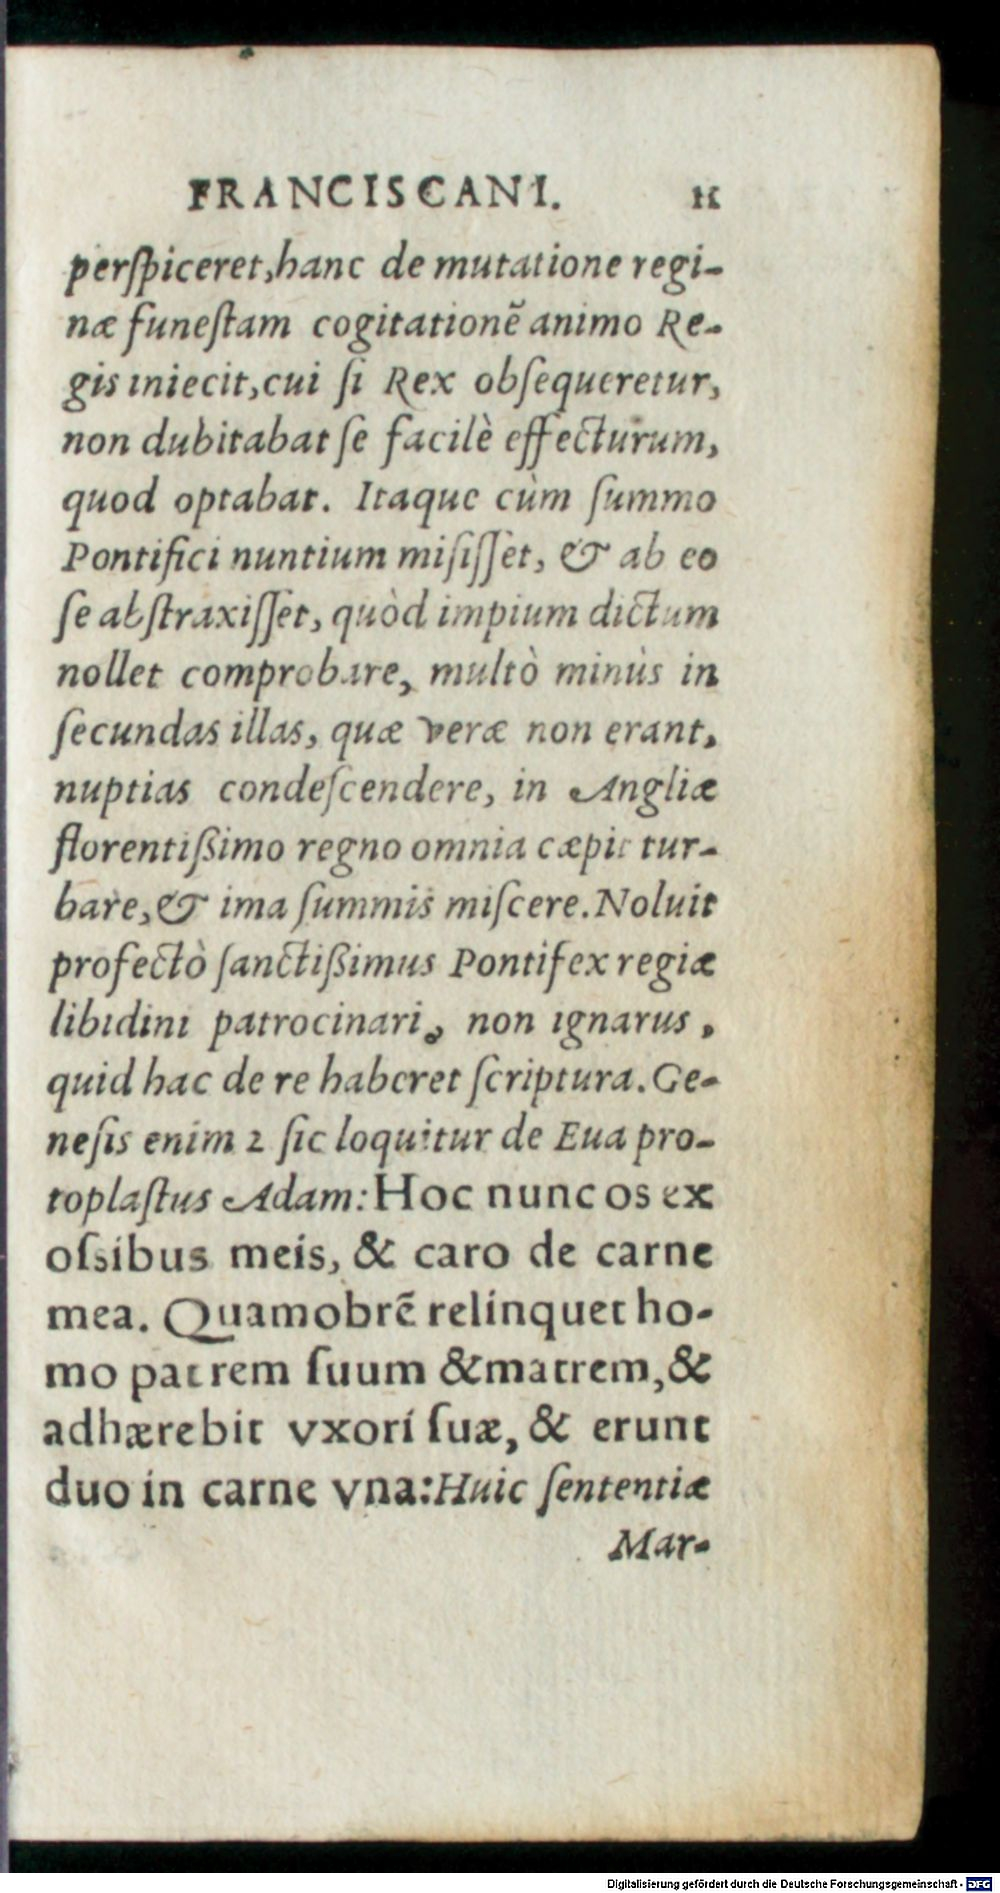 FRANCISCANI. 11
perſpiceret, hanc de mutatione regi-
næ funeſtam cogitationẽ animo Re-
gis iniecit, cui ſi Rex obſequeretur,
non dubitabat ſe facilè effecturum,
quod optabat. Itaque cùm ſummo
Pontifici nuntium miſiſſet, & ab eo
ſe abſtraxiſſet, quòd impium dictum
nollet comprobare, multò minùs in
ſecundas illas, quæ veræ non erant,
nuptias condeſcendere, in Angliæ
florentißimo regno omnia cæpit tur-
bare, & ima ſummis miſcere. Noluit
profectò ſanctißimus Pontifex regiæ
libidini patrocinari, non ignarus,
quid hac de re haberet ſcriptura. Ge-
neſis enim 2 ſic loquitur de Eua pro-
toplaſtus Adam: Hoc nunc os ex
oſsibus meis, & caro de carne
mea. Quamobrẽ relinquet ho-
mo patrem ſuum & matrem, &
adhærebit vxori ſuæ, & erunt
duo in carne vna: Huic ſententiæ
Mar-
Digitalisierung gefördert durch die Deutsche Forschungsgemeinschaft - DFG